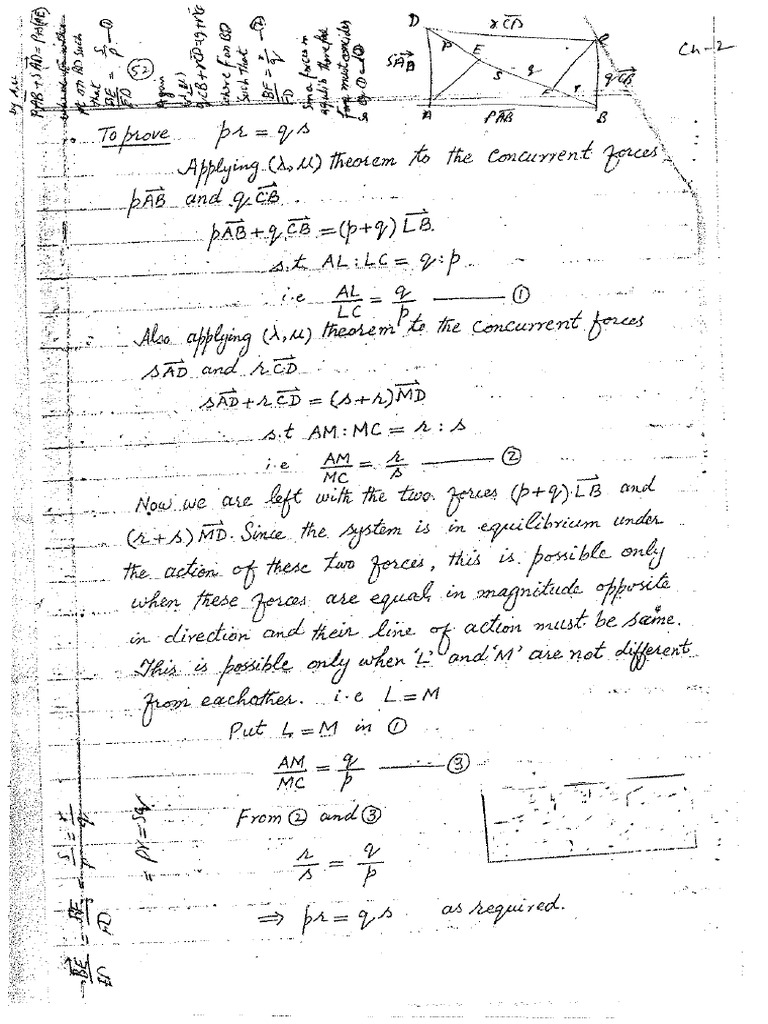 Ch-2
(52)
D
r CD
C
SAD
P
E
S
q
F
r
q CB
A
PAB
B
To prove pr = qs
Applying (λ, μ) theorem to the concurrent forces
pAB and qCB.
pAB + qCB = (p+q) LB.
s.t AL : LC = q : p
i.e AL/LC = q/p ——— ①
Also applying (λ, μ) theorem to the concurrent forces
sAD and rCD
sAD + rCD = (s+r) MD
s.t AM : MC = r : s
i.e AM/MC = r/s ——— ②
Now we are left with the two forces (p+q).LB and
(r+s) MD. Since the system is in equilibrium under
the action of these two forces, this is possible only
when these forces are equal in magnitude opposite
in direction and their line of action must be same.
This is possible only when 'L' and 'M' are not different
from eachother. i.e L = M
Put L = M in ①
AM/MC = q/p ——— ③
From ② and ③
r/s = q/p
⇒ pr = qs as required.
Again
where F on BD
such that
BE/FD = r/q
BE/ED = BE/FD = S/P = r/q
= Pr = Sq